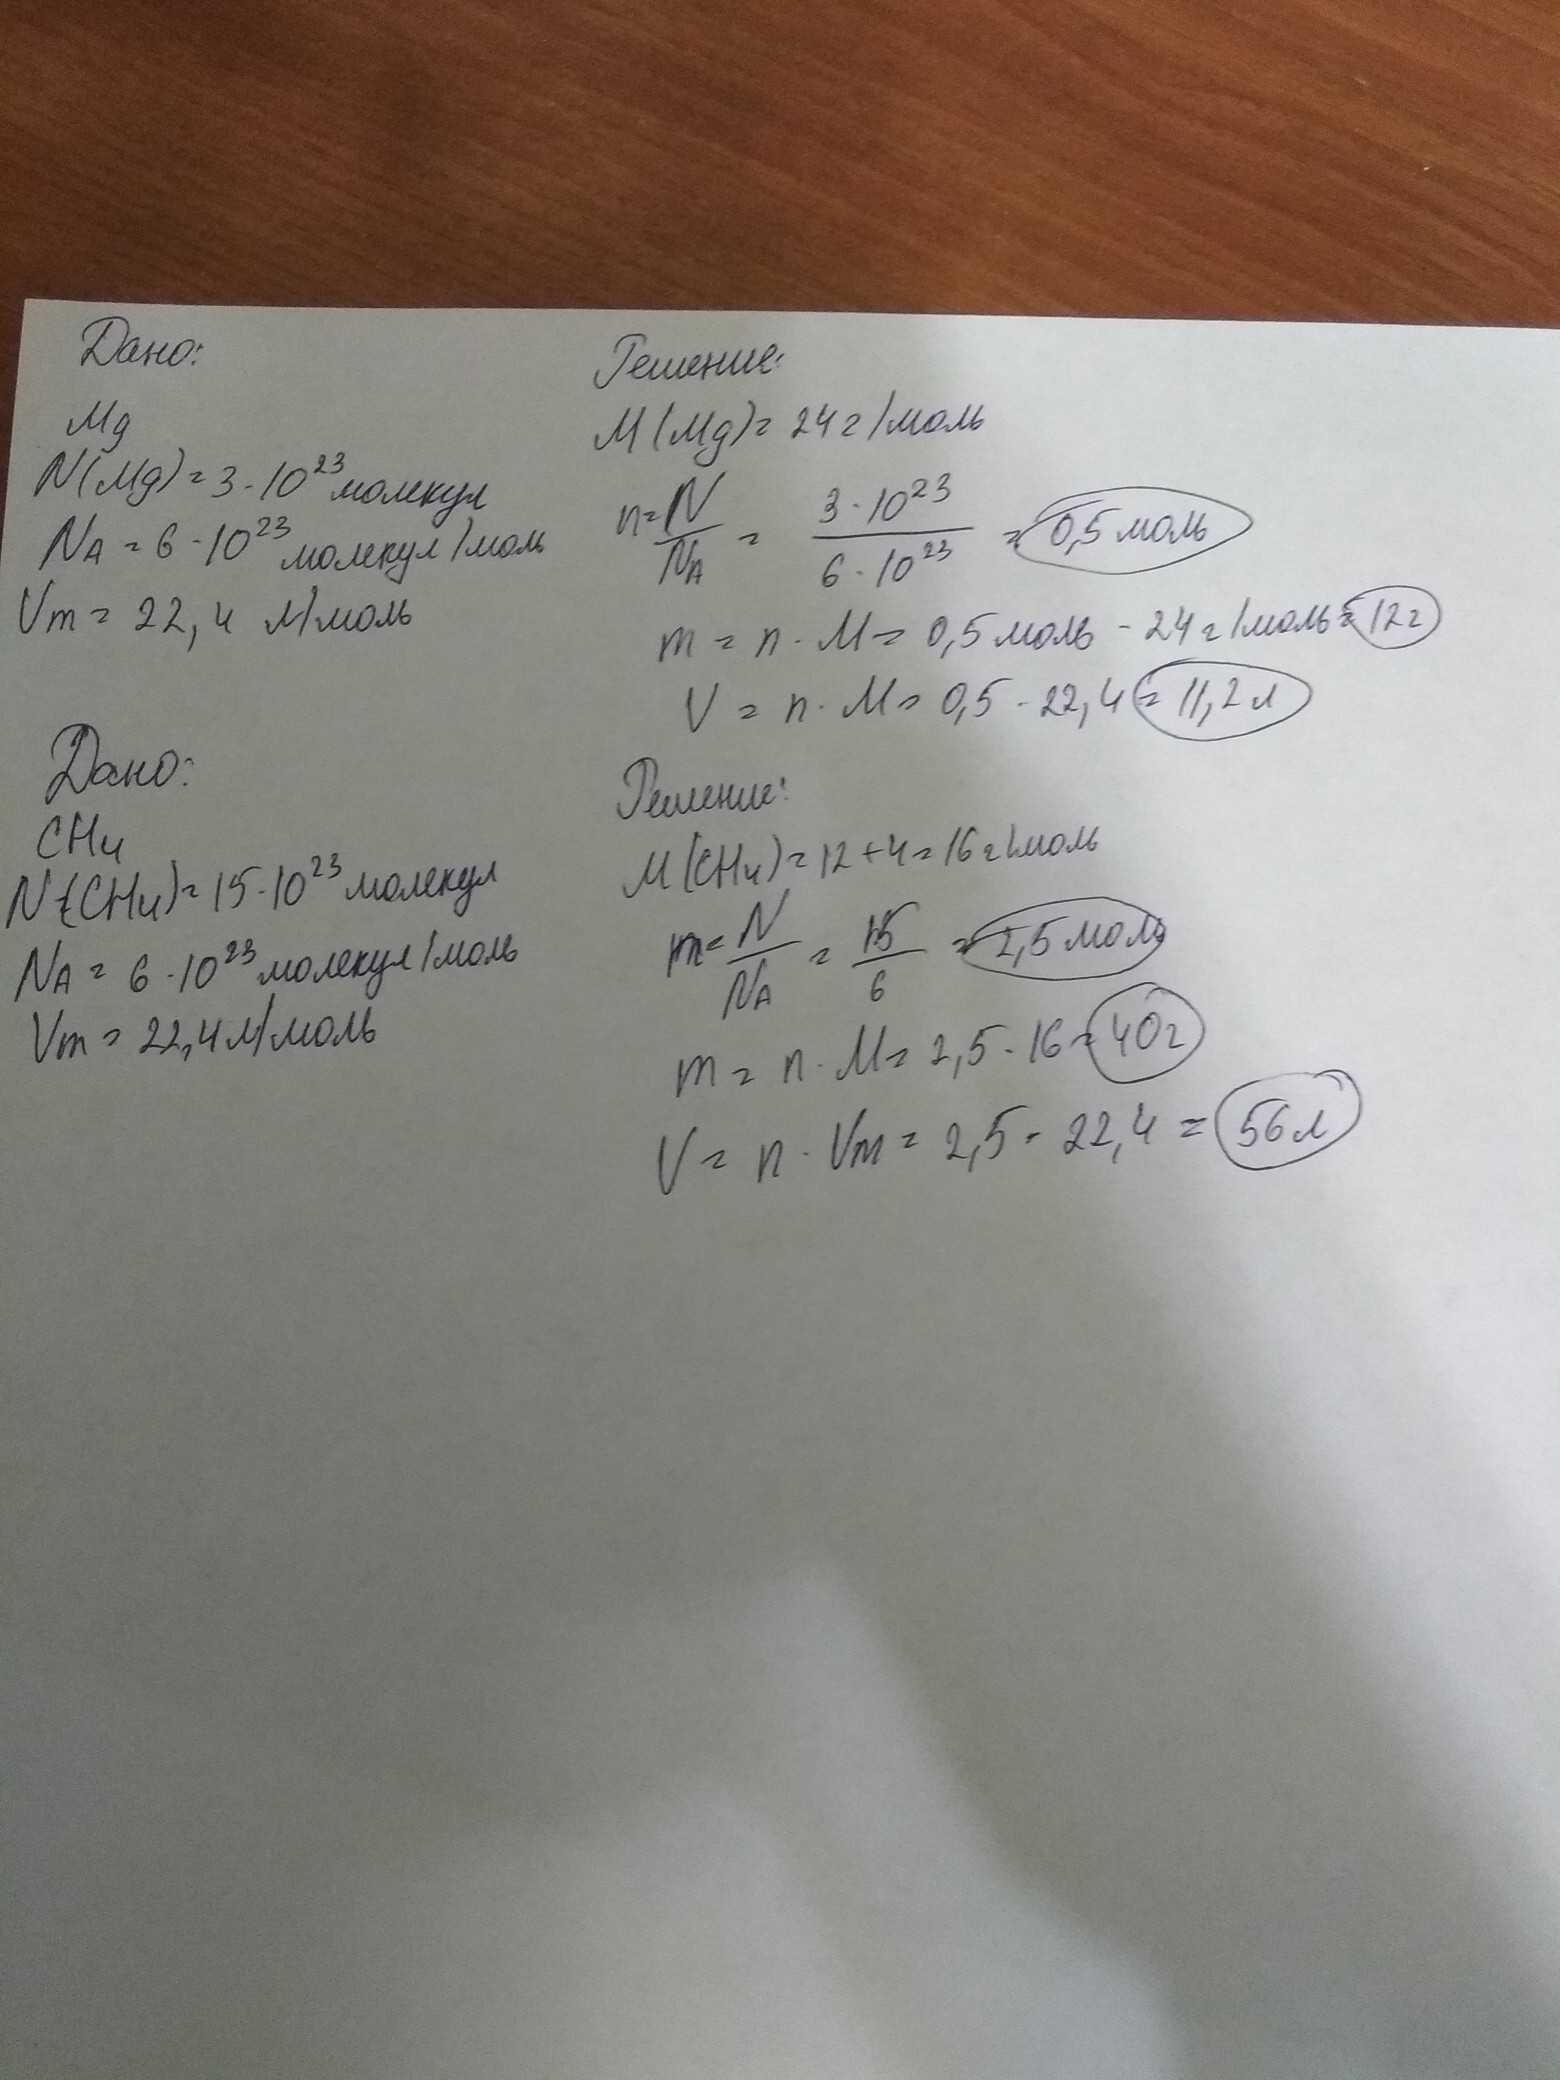 Дано:
Mg
N(Mg) = 3 · 10²³ молекул
NA = 6 · 10²³ молекул/моль
Vm = 22,4 л/моль
Решение:
M(Mg) = 24 г/моль
n = N/NA = 3 · 10²³ / 6 · 10²³ = 0,5 моль
m = n · M = 0,5 моль · 24 г/моль = 12 г
V = n · M = 0,5 · 22,4 = 11,2 л
Дано:
CH₄
N(CH₄) = 15 · 10²³ молекул
NA = 6 · 10²³ молекул/моль
Vm = 22,4 л/моль
Решение:
M(CH₄) = 12 + 4 = 16 г/моль
m = N/NA = 15/6 = 2,5 моль
m = n · M = 2,5 · 16 = 40 г
V = n · Vm = 2,5 · 22,4 = 56 л